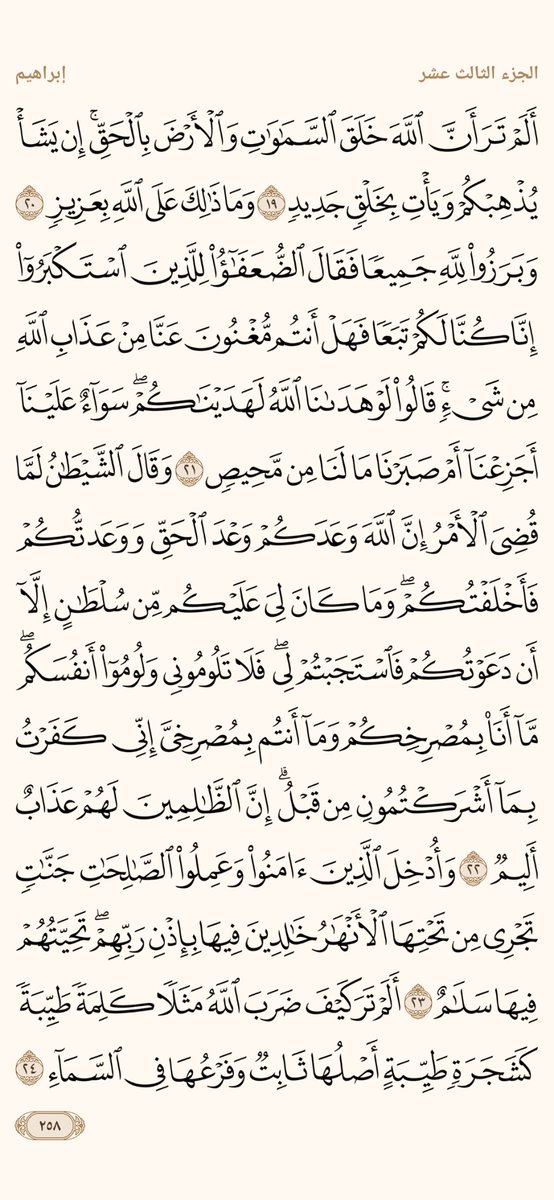 الجزء الثالث عشر
إبراهيم
أَلَمْ تَرَ أَنَّ ٱللَّهَ خَلَقَ ٱلسَّمَٰوَٰتِ وَٱلْأَرْضَ بِٱلْحَقِّۚ إِن يَشَأْ
يُذْهِبْكُمْ وَيَأْتِ بِخَلْقٍ جَدِيدٍ ١٩ وَمَا ذَٰلِكَ عَلَى ٱللَّهِ بِعَزِيزٍ ٢٠
وَبَرَزُوا۟ لِلَّهِ جَمِيعًا فَقَالَ ٱلضُّعَفَٰٓؤُا۟ لِلَّذِينَ ٱسْتَكْبَرُوٓا۟
إِنَّا كُنَّا لَكُمْ تَبَعًا فَهَلْ أَنتُم مُّغْنُونَ عَنَّا مِنْ عَذَابِ ٱللَّهِ
مِن شَىْءٍۚ قَالُوا۟ لَوْ هَدَىٰنَا ٱللَّهُ لَهَدَيْنَٰكُمْۖ سَوَآءٌ عَلَيْنَآ
أَجَزِعْنَآ أَمْ صَبَرْنَا مَا لَنَا مِن مَّحِيصٍ ٢١ وَقَالَ ٱلشَّيْطَٰنُ لَمَّا
قُضِىَ ٱلْأَمْرُ إِنَّ ٱللَّهَ وَعَدَكُمْ وَعْدَ ٱلْحَقِّ وَوَعَدتُّكُمْ
فَأَخْلَفْتُكُمْۖ وَمَا كَانَ لِىَ عَلَيْكُم مِّن سُلْطَٰنٍ إِلَّآ
أَن دَعَوْتُكُمْ فَٱسْتَجَبْتُمْ لِىۖ فَلَا تَلُومُونِى وَلُومُوٓا۟ أَنفُسَكُمۖ
مَّآ أَنَا۠ بِمُصْرِخِكُمْ وَمَآ أَنتُم بِمُصْرِخِىَّ إِنِّى كَفَرْتُ
بِمَآ أَشْرَكْتُمُونِ مِن قَبْلُۗ إِنَّ ٱلظَّٰلِمِينَ لَهُمْ عَذَابٌ
أَلِيمٌ ٢٢ وَأُدْخِلَ ٱلَّذِينَ ءَامَنُوا۟ وَعَمِلُوا۟ ٱلصَّٰلِحَٰتِ جَنَّٰتٍ
تَجْرِى مِن تَحْتِهَا ٱلْأَنْهَٰرُ خَٰلِدِينَ فِيهَا بِإِذْنِ رَبِّهِمْۖ تَحِيَّتُهُمْ
فِيهَا سَلَٰمٌ ٢٣ أَلَمْ تَرَ كَيْفَ ضَرَبَ ٱللَّهُ مَثَلًا كَلِمَةً طَيِّبَةً
كَشَجَرَةٍ طَيِّبَةٍ أَصْلُهَا ثَابِتٌ وَفَرْعُهَا فِى ٱلسَّمَآءِ ٢٤
٢٥٨